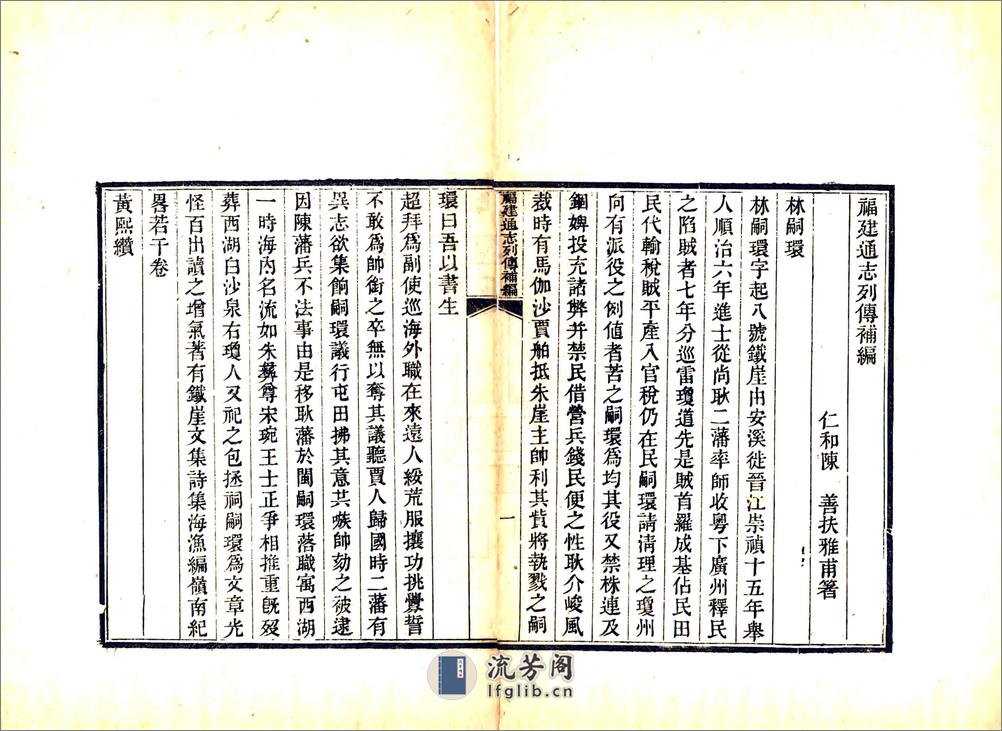 福建通志列傳補編
仁和陳　善扶雅甫著
林嗣環
林嗣環字起八號鐵崖由安溪徙晉江崇禎十五年舉
人順治六年進士從尚耿二藩率師收粵下廣州釋民
之陷賊者七年分巡雷瓊道先是賊首羅成基佔民田
民代輸稅賊平產入官稅仍在民嗣環請淸理之瓊州
向有派役之例値者苦之嗣環爲均其役又禁株連及
錮婢投充諸弊并禁民借營兵錢民便之性耿介峻風
裁時有馬伽沙賈舶抵朱崖主帥利其貲將執戮之嗣
福建通志列傳補編
一
環曰吾以書生
超拜爲副使巡海外職在來遠人綏荒服攘功挑釁誓
不敢爲帥銜之卒無以奪其議聽賈人歸國時二藩有
異志欲集餉嗣環議行屯田拂其意共嗾帥劾之被逮
因陳藩兵不法事由是移耿藩於閩嗣環落職寓西湖
一時海內名流如朱彝尊宋琬王士正爭相推重旣歿
葬西湖白沙泉右瓊人又祀之包拯祠嗣環爲文章光
怪百出讀之增氣著有鐵崖文集詩集海漁編嶺南紀
畧若干卷
黃熙纘
流芳阁
lfglib.cn